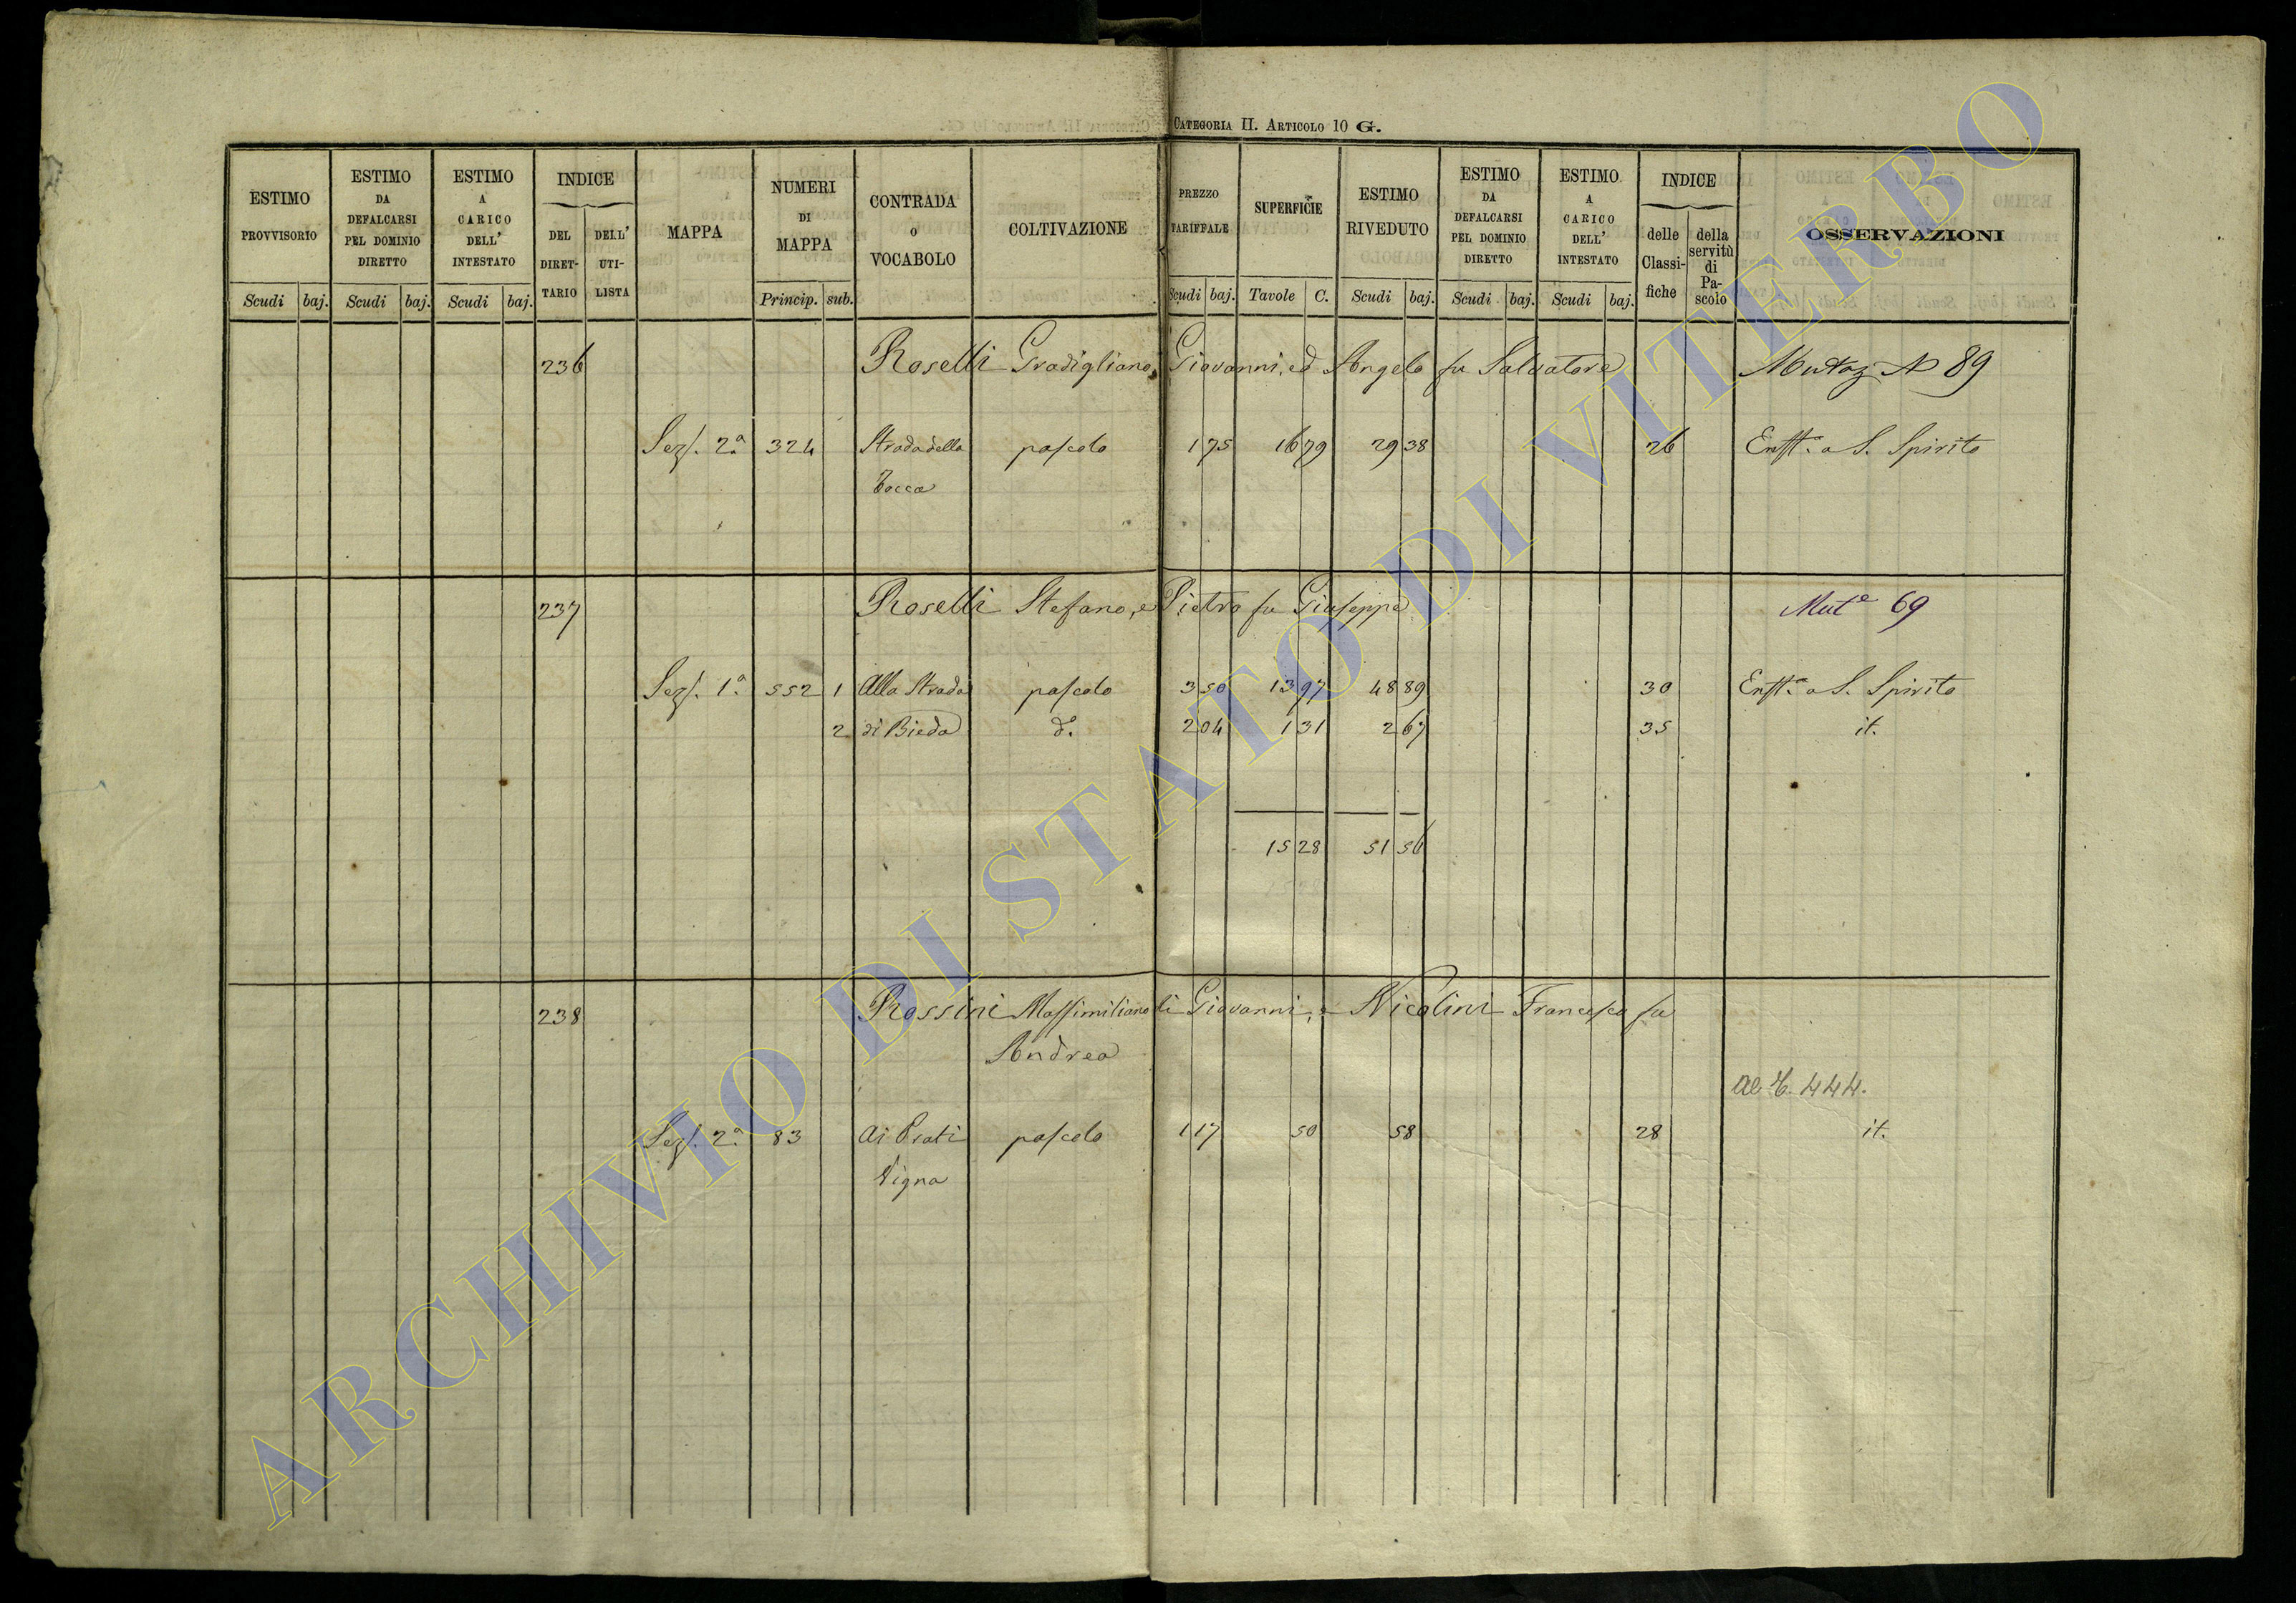 CATEGORIA II. ARTICOLO 10 G.
ESTIMO PROVVISORIO | ESTIMO DA DEFALCARSI PEL DOMINIO DIRETTO | ESTIMO A CARICO DELL' INTESTATO | INDICE DEL DIRETTARIO | DELL' UTILISTA | MAPPA | NUMERI DI MAPPA | CONTRADA O VOCABOLO | COLTIVAZIONE | PREZZO TARIFFALE | SUPERFICIE | ESTIMO RIVEDUTO | ESTIMO DA DEFALCARSI PEL DOMINIO DIRETTO | ESTIMO A CARICO DELL' INTESTATO | INDICE delle Classifiche | della servitù di Pascolo | OSSERVAZIONI
Scudi baj. Scudi baj. Scudi baj. Princip. sub. Scudi baj. Tavole C. Scudi baj. Scudi baj. Scudi baj.
236 Roselli Gradigliano, Giovanni, ed Angelo fu Salvatore Mutaz N 89
Sez. 2ª 324 Strada della pascolo 1 75 16 79 29 38 26 Enfta a S. Spirito
Tocca
237 Roselli Stefano, e Pietro fu Giuseppe Mute 69
Sez. 1ª 552 1 Alla Strada pascolo 3 50 13 97 48 89 30 Enfta a S. Spirito
2 di Bieda d.o 2 04 1 31 2 67 35 it.
15 28 51 56
238 Rossini Massimiliano di Giovanni, e Nicolini Francesco fu
Andrea
444.
Sez. 2ª 83 Ai Prati pascolo 1 17 50 58 28 it.
Vigna
ARCHIVIO DI STATO DI VITERBO